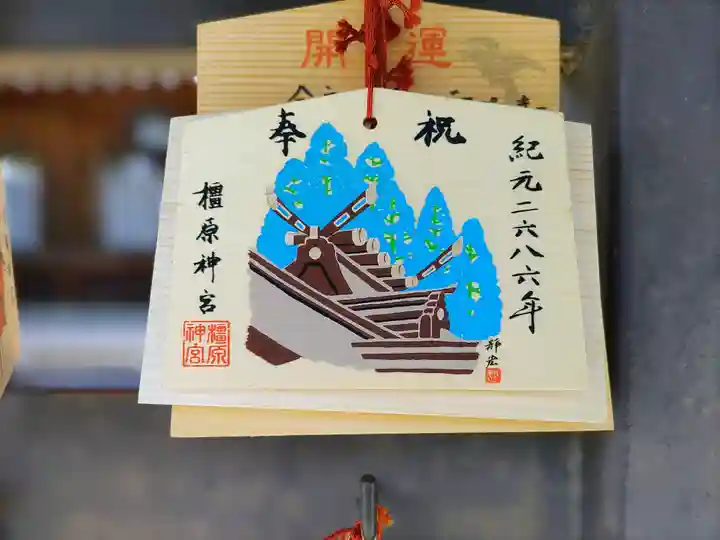 開運
奉祝
紀元二六八六年
橿原神宮
橿原
神宮